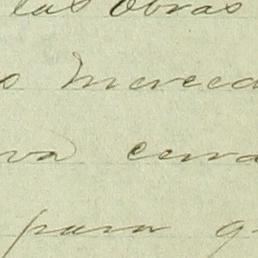 las Obras
s Merced
va cerra
para q